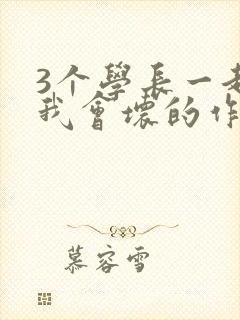 3个學長一起
我會壞的作
慕容雪